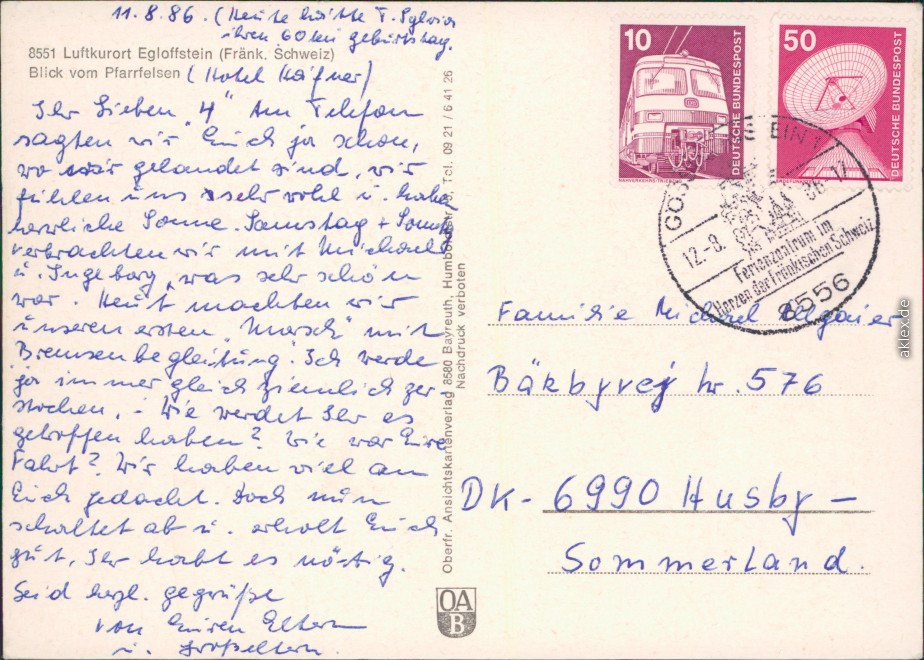 11.8.86. (Heute hätte T. Sylvia
ihren 60ten geburtstag.
8551 Luftkurort Egloffstein (Fränk. Schweiz)
Blick vom Pfarrfelsen (Hotel Häfner)
Ihr Lieben "4" Am Telefon
sagten wir Euch ja schon,
wo wir gelandet sind, wir
fühlen uns sehr wohl u. haben
herrliche Sonne. Samstag + Sonntag
verbrachten wir mit Michael
u. Ingeborg, was sehr schön
war. Heut machten wir
unseren ersten "Marsch" mit
"Bremsenbegleitung". Ich werde
ja immer gleich ziemlich zer
stochen. - Wie werdet Ihr es
getroffen haben? Wie war Eure
Fahrt? Wir haben viel an
Euch gedacht. Doch nun
schaltet ab u. erholt Euch
gut, Ihr habt es nötig.
Seid herzl. gegrüßt
von Euren Eltern
u. Großeltern.
Oberfr. Ansichtskartenverlag 8580 Bayreuth, Tel. 09 21 / 6 41 26
Nachdruck verboten
OA
B
10
DEUTSCHE BUNDESPOST
50
DEUTSCHE BUNDESPOST
12.-8.86-17
Ferienzentrum im
Herzen der Fränkischen Schweiz
8556
Familie Michael
Bäkbyvej nr. 576
DK - 6990 Husby -
Sommerland.
aklex.de